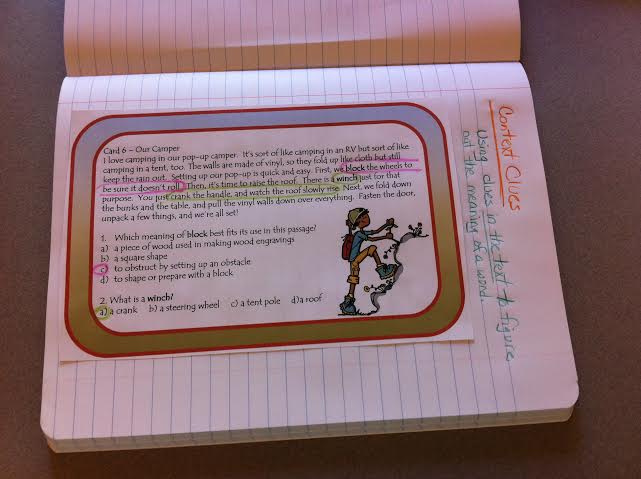 Context Clues
Using clues in the text to figure
out the meaning of a word.
Card 6 – Our Camper
I love camping in our pop-up camper. It's sort of like camping in an RV but sort of like
camping in a tent, too. The walls are made of vinyl, so they fold up like cloth but still
keep the rain out. Setting up our pop-up is quick and easy. First, we block the wheels to
be sure it doesn't roll. Then, it's time to raise the roof. There is a winch just for that
purpose. You just crank the handle, and watch the roof slowly rise. Next, we fold down
the bunks and the table, and pull the vinyl walls down over everything. Fasten the door,
unpack a few things, and we're all set!
1. Which meaning of block best fits its use in this passage?
a) a piece of wood used in making wood engravings
b) a square shape
c) to obstruct by setting up an obstacle
d) to shape or prepare with a block
2. What is a winch?
a) a crank b) a steering wheel c) a tent pole d) a roof